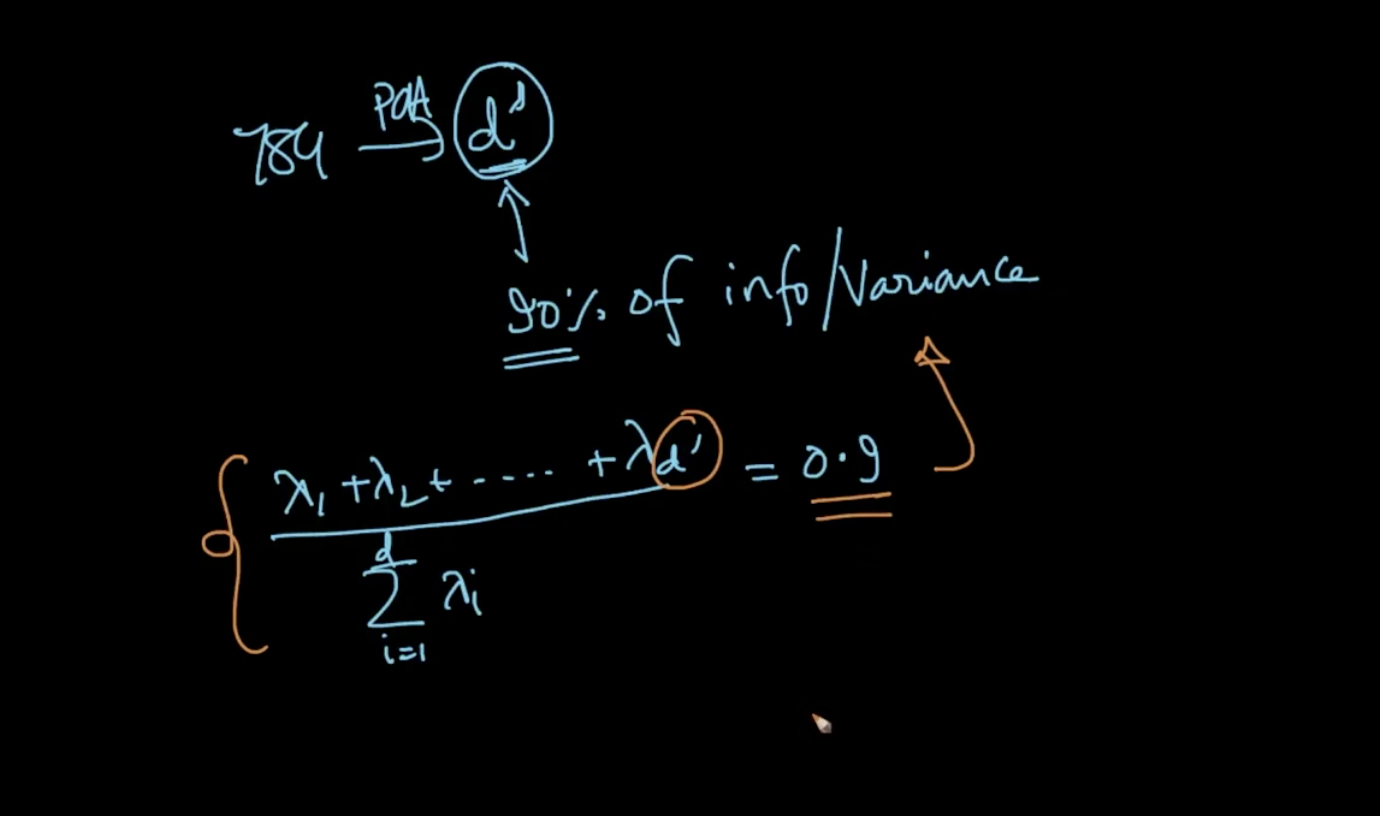 784 PCA → d'
90% of info/Variance
λ₁ + λ₂ + ..... + λd' = 0.9
d
Σ λi
i=1